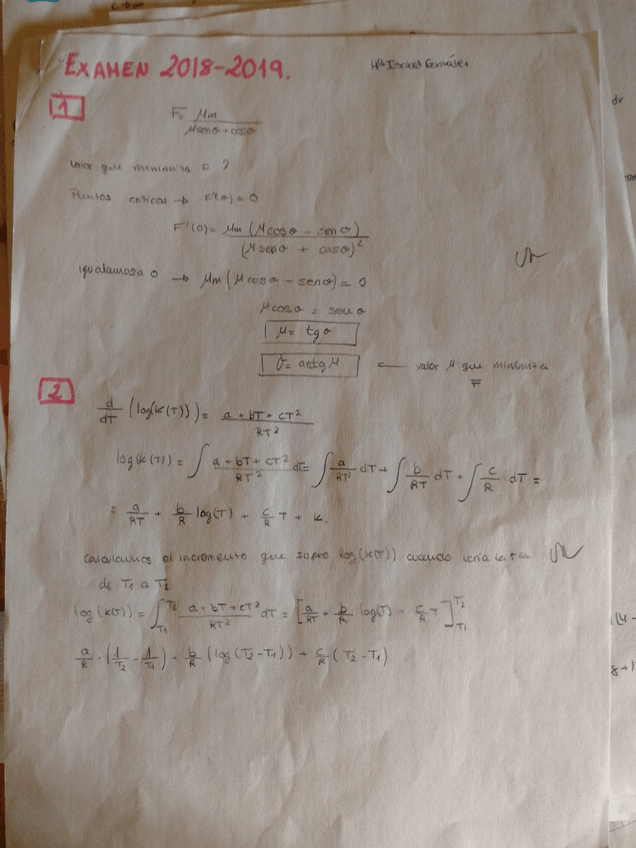 EXAMEN 2018-2019.
1
F = μm / (μ senθ + cosθ)
valor que minimiza F ?
Puntos críticos → F'(θ) = 0
F'(θ) = μm (μ cosθ - senθ) / (μ senθ + cosθ)²
igualamos a 0 → μm (μ cosθ - senθ) = 0
μ cosθ = senθ
μ = tgθ
θ = arctg μ ← valor μ que minimiza
F
2
d/dT (log(K(T))) = (a + bT + cT²) / RT²
log(K(T)) = ∫ (a + bT + cT²) / RT² dT = ∫ a/RT² dT + ∫ b/RT dT + ∫ c/R dT =
= a/RT + b/R log(T) + c/R T + K.
Calculamos el incremento que sufre log(K(T)) cuando varía la T=
de T₁ a T₂
log(K(T)) = ∫_T₁^T₂ (a + bT + cT²) / RT² dT = [a/RT + b/R log(T) + c/R T]_T₁^T₂
a/R · (1/T₂ - 1/T₁) + b/R (log(T₂ - T₁)) + c/R (T₂ - T₁)
dr